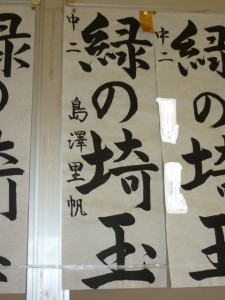 緑の埼玉
中二 島澤里帆
緑の埼玉
中二
緑の埼玉